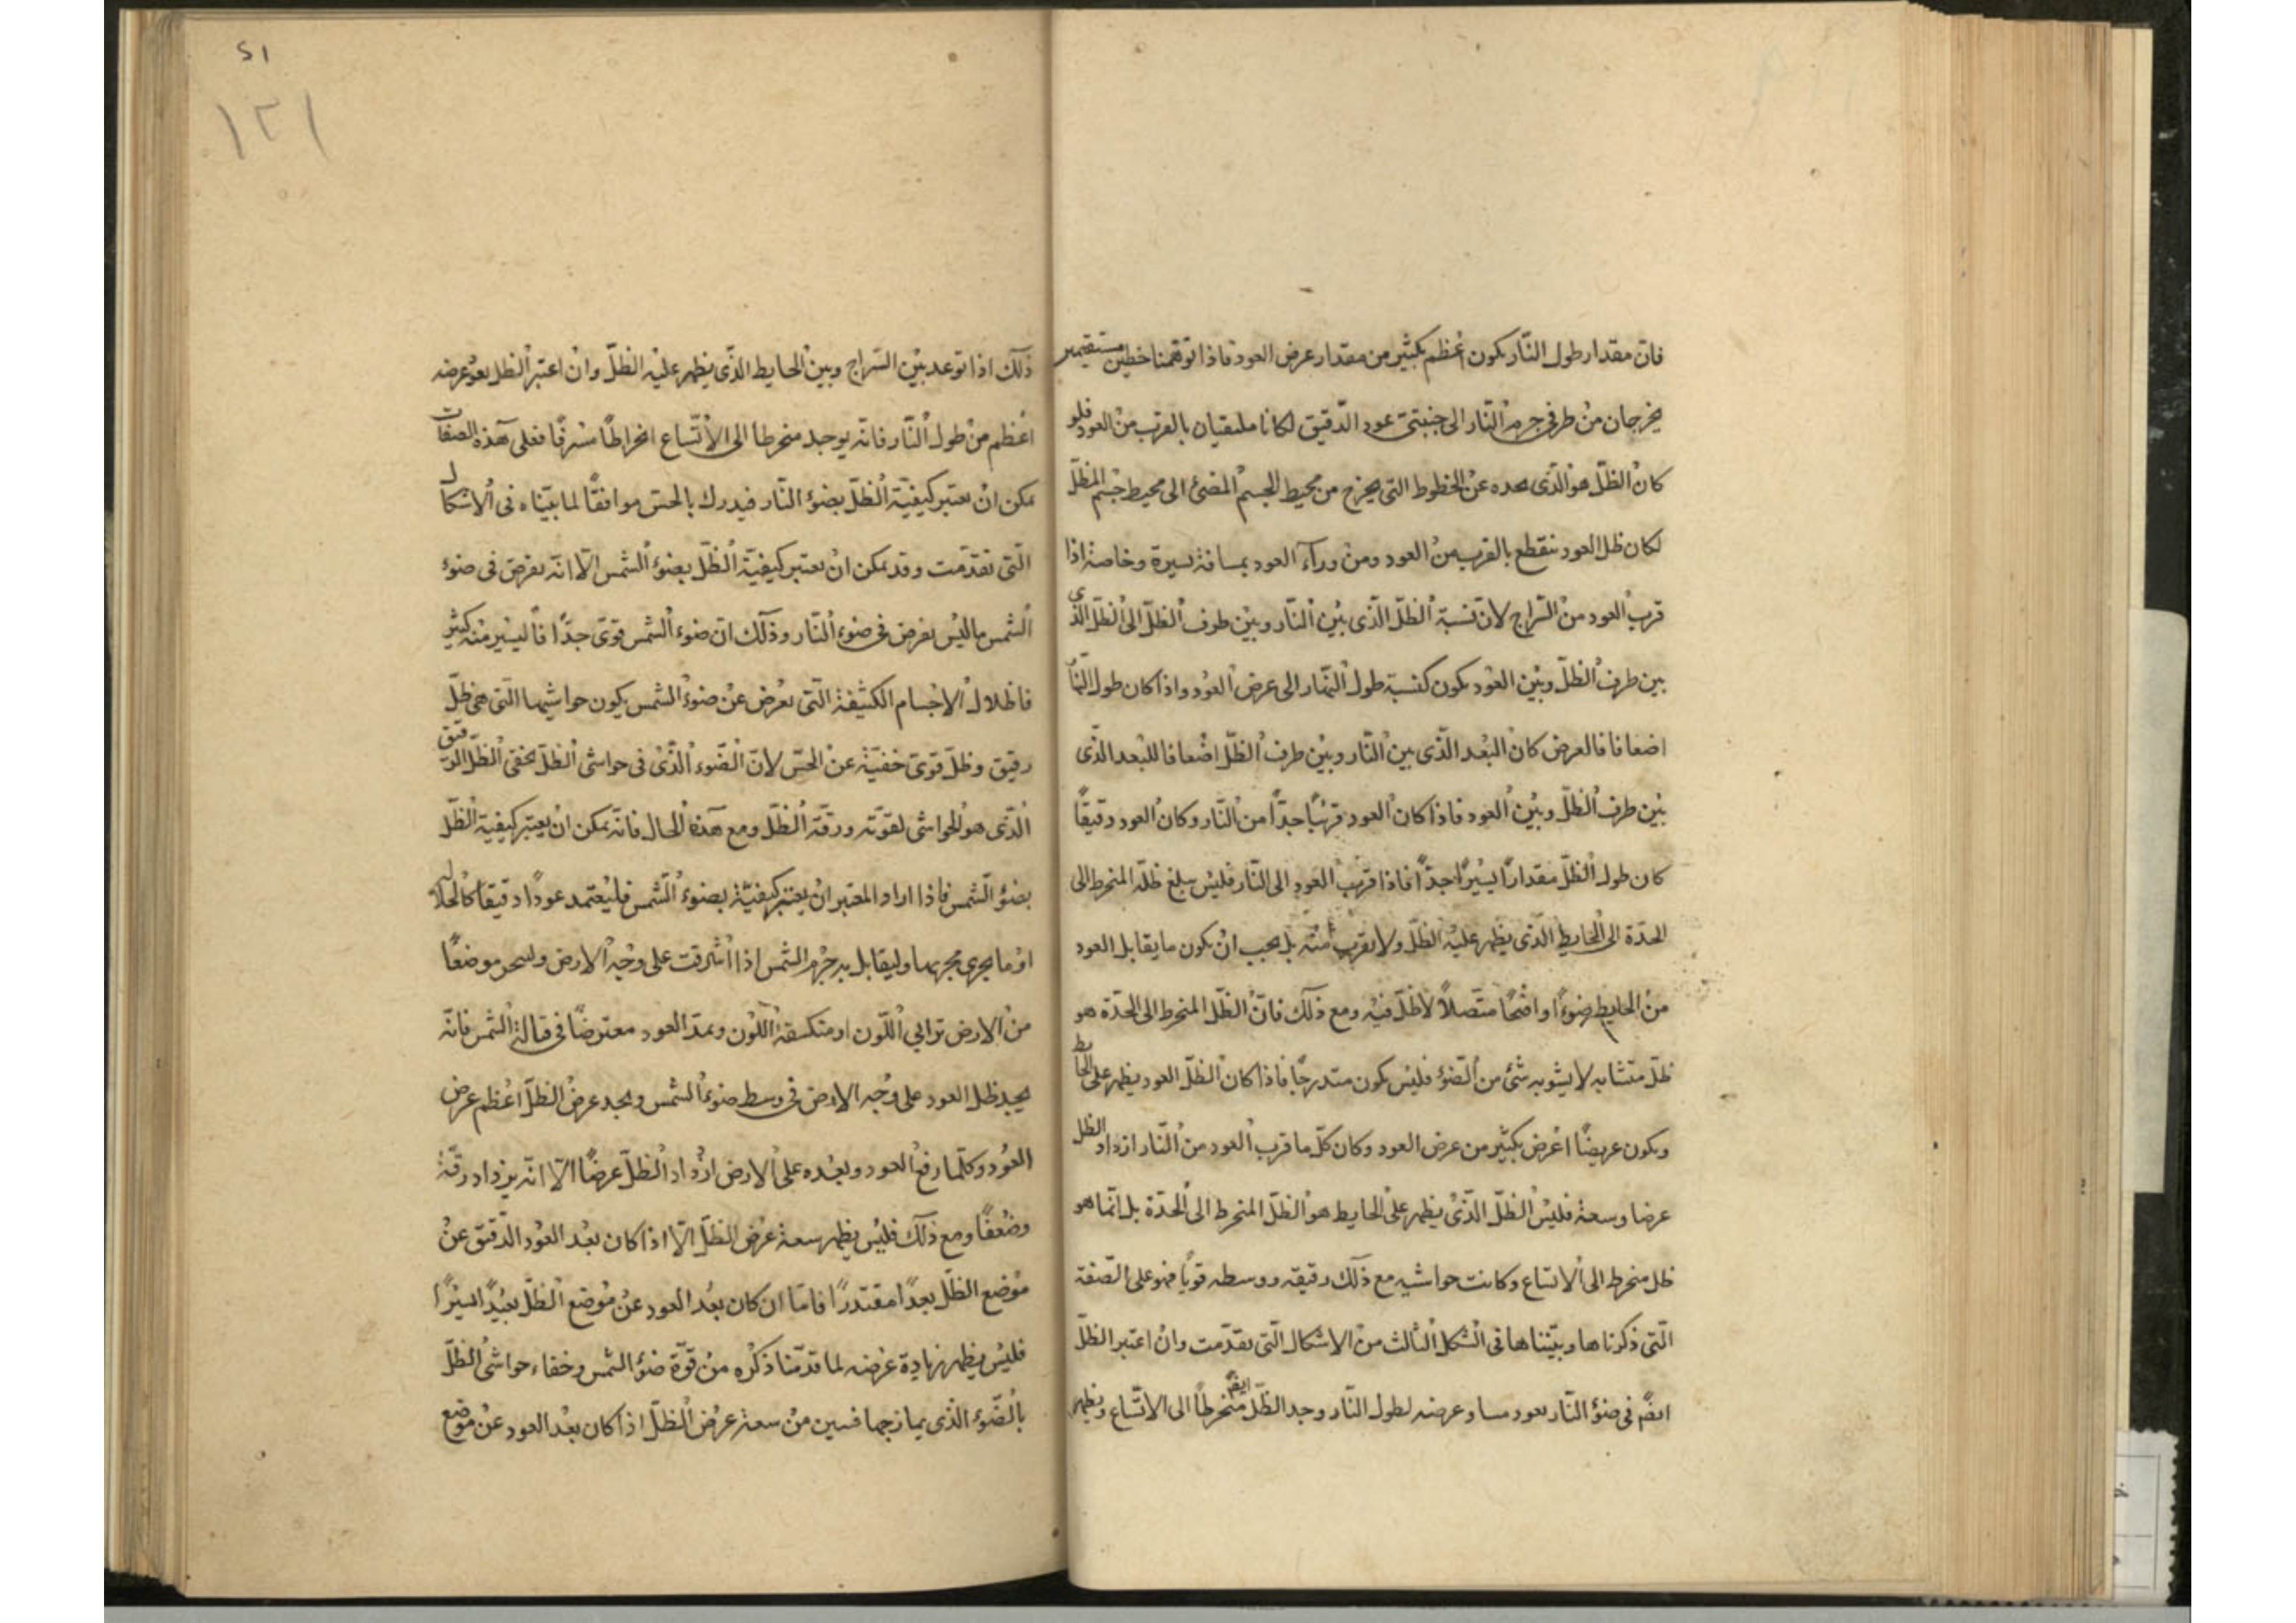 فان مقدار طول النّار يكون اعظم بكثير من مقدار عرض العود فاذا توهمنا خطين مستقيمين
يخرجان من طرفى جرم النّار الى جنبتى عود الدّقيق لكانا ملتقيان بالقرب من العود فلو
كان الظلّ هو الّذى يحده عن الخطوط التى يخرج من محيط الجسم المضئ الى محيط جسم المظلّ
لكان ظل العود ينقطع بالقرب من العود ومن ورآء العود بمسافة يسيرة وخاصة اذا
قرب العود من السّراج لانّ نسبة الظلّ الّذى بين النّار وبين طرف الظلّ الى الظلّ الّذى
بين طرف الظلّ وبين العود يكون كنسبة طول النّار الى عرض العود واذا كان طول النّار
اضعافا فالعرض كان البعد الّذى بين النّار وبين طرف الظلّ اضعافا للبعد الذّى
بين طرف الظلّ وبين العود فاذا كان العود قريبًا جدّا من النّار وكان العود دقيقًا
كان طول الظلّ مقدارًا يسيرًا جدًّا فاذا قرب العود الى النّار فليس يبلغ ظلّه المنخرط الى
الحدّة الى الحايط الّذى يظهر عليه الظلّ ولا يقرب منه بل يجب ان يكون ما يقابل العود
من الحايط ضوءًا واضحًا متّصلًا لا ظلّ فيه ومع ذلك فانّ الظلّ المنخرط الى الحدّة هو
ظلّ متشابه لا يشوبه شئ من الضّوء فليس يكون متدرجًا فاذا كان الظلّ العود يظهر على الحايط
ويكون عريضًا اعرض بكثير من عرض العود وكان كلّ ما قرب العود من النّار ازداد الظل
عرضا وسعة فليس الظلّ الّذى يظهر على الحايط هو الظلّ المنخرط الى الحدّة بل انّما هو
ظل منخرط الى الاتساع وكانت حواشيه مع ذلك رقيقه ووسطه قويًا فهو على الصّفة
الّتى ذكرناها وبيّنناها فى الشكل الثالث من الاشكال الّتى تقدّمت وان اعتبر الظلّ
ايضًا فى ضوء النّار بعود مساو عرضه لطول النّار وجد الظلّ ايضًا منخرطًا الى الاتّساع ويظهر
٥١
١٢١
ذلك اذا بوعد بين السّراج وبين الحايط الّذى يظهر عليه الظلّ وان اعتبر الظل بعود عرضه
اعظم من طول النّار فانّه يوجد منخرطا الى الاتّساع انخراطًا مسرفًا فعلى هذه الصفات
يمكن ان يعتبر كيفيّة الظلّ بضوء النّار فيدرك بالحسّ موافقًا لما بيّناه فى الاشكال
الّتى تقدّمت وقد يمكن ان يعتبر كيفيّة الظلّ بضوء الشمس الّا انّه يعرض فى ضوء
الشمس ما ليس يعرض فى ضوء النّار وذلك ان ضوء الشمس قوىّ جدًّا فاليسير منه كثير
فاظلال الاجسام الكثيفة الّتى تعرض عن ضوء الشمس يكون حواشيها التى هى ظلّ
رقيق وظلّ قوىّ خفيّة عن الحسّ لانّ الضّوء الّذى فى حواشى الظلّ يخفى الظلّ الرّقيق
الّذى هو الحواشى لقوّته ورقّة الظلّ ومع هذه الحال فانّه يمكن ان يعتبر كيفية الظلّ
بضوء الشّمس فاذا اراد المعتبر ان يعتبر كيفيّة بضوء الشّمس فليعتمد عودًا دقيقا كالخلال
او ما يجرى مجريها وليقابل به جرم الشّمس اذا اشرقت على وجه الارض وليتحر موضعًا
من الارض ترابي اللّون او متكسفة اللّون ويمدّ العود معترضًا فى قبالة الشمس فانّه
يجد ظل العود على وجه الارض فى وسط ضوء الشمس ويجد عرض الظلّ اعظم عرض
العود وكلّما رفع العود وبعده على الارض ازداد الظلّ عرضًا الّا انّه يزداد رقّة
وضعفًا ومع ذلك فليس يظهر سعة عرض الظلّ الّا اذا كان بعد العود الدّقيق عن
موضع الظلّ بعدًا مقتدرًا فامّا ان كان بعد العود عن موضع الظلّ بعيدًا يسيرًا
فليس يظهر زيادة عرضه لما قدّمنا ذكره من قوّة ضوء الشّمس وخفاء حواشى الظلّ
بالضّوء الذّى يمازجها فيبين من سعة عرض الظلّ اذا كان بعد العود عن موضع